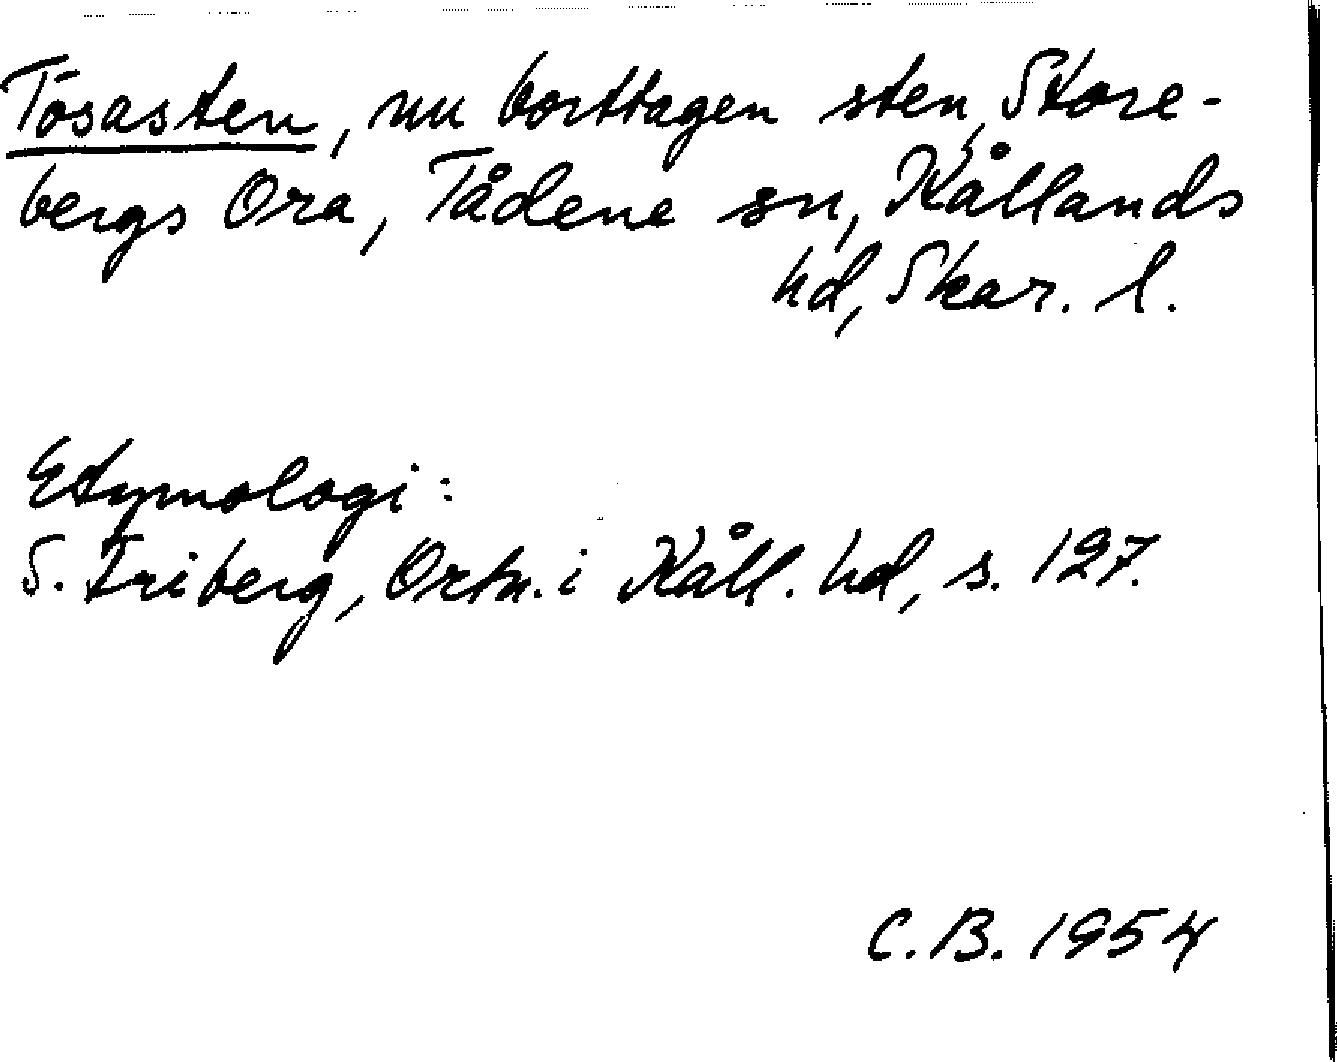 Tösasten, nu borttagen sten, Store-
bergs Ora, Tådene sn, Kållands
hd, Skar. l.
Etymologi:
S. Friberg, Ortn. i Kåll. hd, s. 127.
C. B. 1954